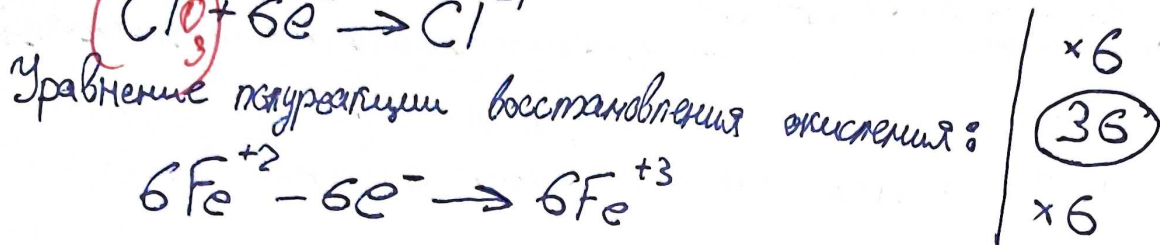 (ClO3) + 6e → Cl ×6
Уравнение полуреакции восстановления окисления: 36
6Fe+2 – 6e– → 6Fe+3 ×6